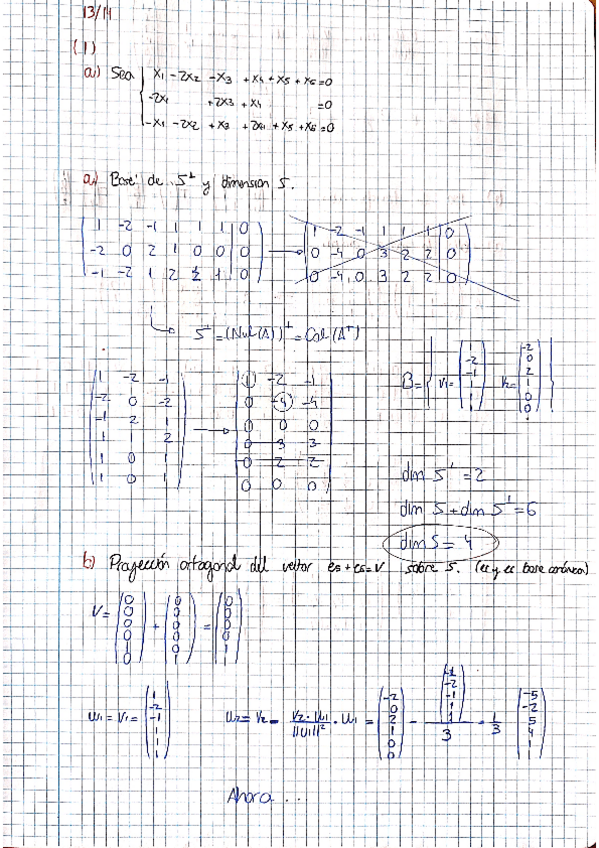 13/14
(1)
a) Sea { x1 - 2x2 - x3 + x4 + x5 + x6 = 0
-2x1 + 2x3 + x4 = 0
-x1 - 2x2 + x3 + 2x4 + x5 + x6 = 0
a) Base de S⊥ y dimension S.
1 -2 -1 1 1 1 | 0
-2 0 2 1 0 0 | 0
-1 -2 1 2 1 1 | 0
→
1 -2 -1 1 1 1 | 0
0 -4 0 3 2 2 | 0
0 -4 0 3 2 2 | 0
↳ S⊥ = (Nul(A))⊥ = Col(Aᵗ)
1 -2 -1
-2 0 -2
-1 2 1
1 1 2
1 0 1
1 0 1
→
1 -2 -1
0 -4 -4
0 0 0
0 3 3
0 2 2
0 0 0
B = { v1 = (1 -2 -1 1 1 1) v2 = (-2 0 2 1 0 0) }
dim S⊥ = 2
dim S + dim S⊥ = 6
dim S = 4
b) Proyección ortogonal del vector e5 + e6 = v sobre S. (e5 y e6 base canónica)
V = (0 0 0 0 1 0) + (0 0 0 0 0 1) = (0 0 0 0 1 1)
u1 = v1 = (1 -2 -1 1 1 1)
u2 = v2 - v2·u1/||u1||² · u1 = (-2 0 2 1 0 0) - (-1 -2 -1 1 1)/3 · 1/3 (-5 -2 5 4 1 1)
Ahora ...